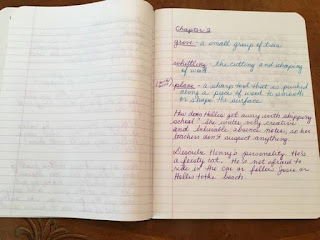 Chapter 2
grove - a small group of trees
whittling - the cutting and shaping
of wood
plane - a sharp tool that is pushed
along a piece of wood to smooth
or shape the surface
How does Hollis get away with skipping
school? She writes very creative
and believable absence notes, so her
teachers don't suspect anything.
Describe Henry's personality. He's
a feisty cat. He's not afraid to
ride in the car or follow Josie or
Hollis to the beach